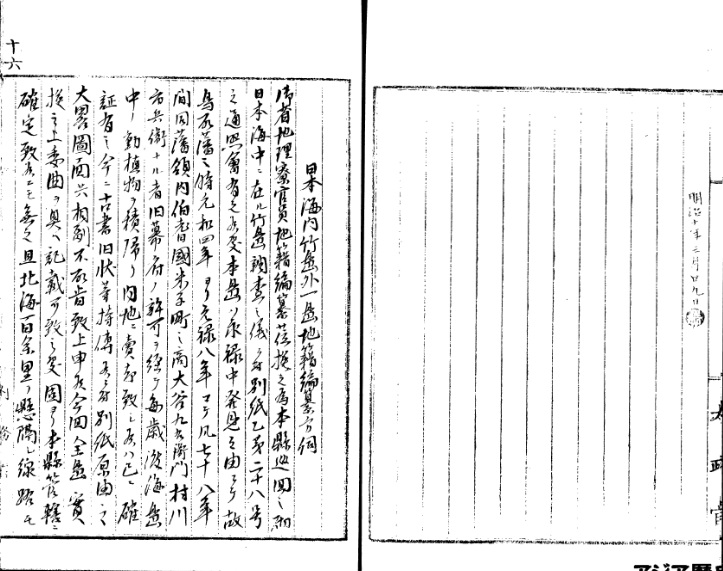 明治十年三月廿九日
太政官
日本海内竹島外一島地籍編纂方伺
御省地理寮官員地籍編纂莅検之為本縣巡回之砌
日本海中ニ在ル竹島調査之儀ニ付別紙乙第二十八号
之通照會有之候処本島ハ永禄中発見之由ニテ故
鳥取藩之時元和四年ヨリ元禄八年マテ凡七十八年
間同藩領内伯耆國米子町之商大谷九右衛門村川
市兵衛ナル者旧幕府ノ許可ヲ経テ毎歳渡海島
中ノ動植物ヲ積帰リ内地ニ賣却致シ候ハ已ニ確
証有之今ニ古書旧状等持傳候ニ付別紙原由之
大畧圖面共相副不取敢致上申候今回全島實
検之上委曲ヲ具ヘ記載可致之処固ヨリ本縣管轄ニ
確定致候ニモ無之且北海百余里ヲ懸隔シ線路モ
十六